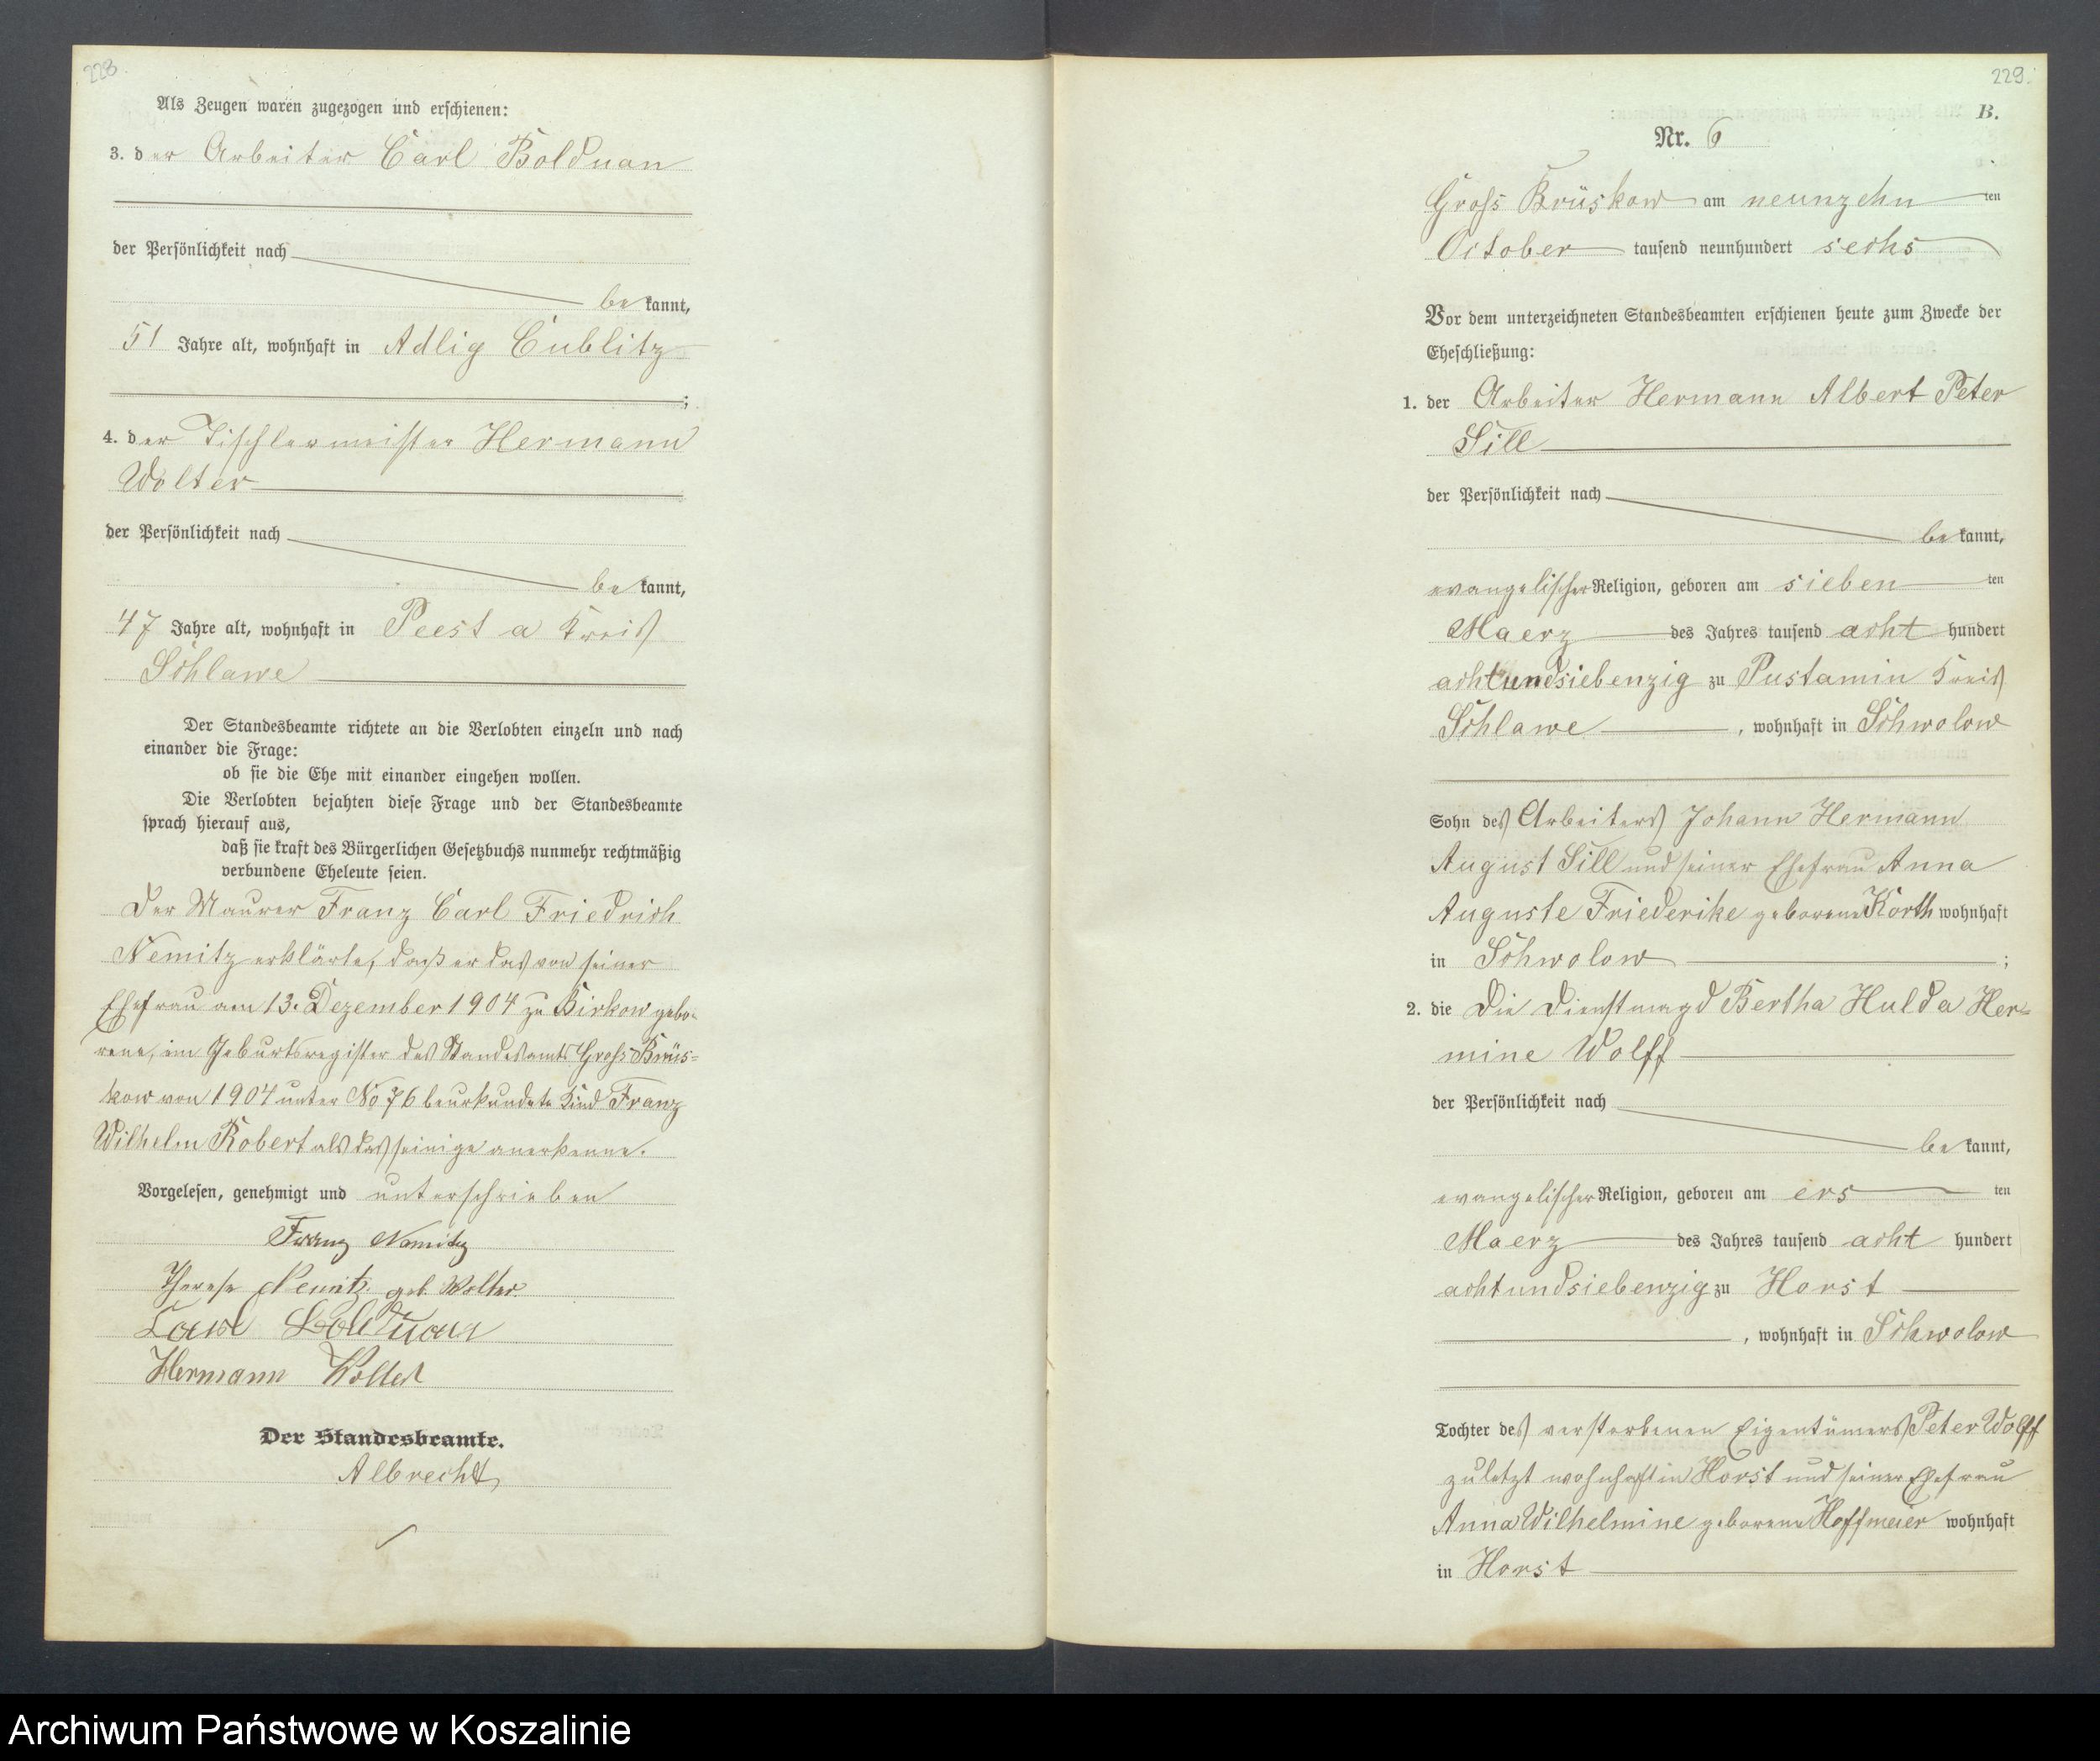 228.
Als Zeugen waren zugezogen und erschienen:
3. der Arbeiter Carl Bolduan
der Persönlichkeit nach
bekannt,
51 Jahre alt, wohnhaft in Adlig Cublitz
;
4. der Tischlermeister Hermann
Wolter
der Persönlichkeit nach
bekannt,
47 Jahre alt, wohnhaft in Peest a Kreis
Schlawe
Der Standesbeamte richtete an die Verlobten einzeln und nach
einander die Frage:
ob sie die Ehe mit einander eingehen wollen.
Die Verlobten bejahten diese Frage und der Standesbeamte
sprach hierauf aus,
daß sie kraft des Bürgerlichen Gesetzbuchs nunmehr rechtmäßig
verbundene Eheleute seien.
Der Maurer Franz Carl Friedrich
Nemitz erklärte, daß er das von seiner
Ehefrau am 13. Dezember 1904 zu Birkow gebo-
rene, im Geburtsregister des Standesamts Gross Brüs-
kow von 1904 unter No 76 beurkundete Kind Franz
Wilhelm Robert als das seinige anerkenne.
Vorgelesen, genehmigt und unterschrieben
Franz Nemitz
Therese Nemitz geb. Wolter.
Carl Bolduan
Hermann Wolter
Der Standesbeamte.
Albrecht
229.
B.
Nr. 6
Gross Brüskow am neunzehn ten
October tausend neunhundert sechs
Vor dem unterzeichneten Standesbeamten erschienen heute zum Zwecke der
Eheschließung:
1. der Arbeiter Hermann Albert Peter
Sill
der Persönlichkeit nach
bekannt,
evangelischer Religion, geboren am sieben ten
Maerz des Jahres tausend acht hundert
achtundsiebenzig zu Pustamin Kreis
Schlawe , wohnhaft in Schwolow
Sohn des Arbeiters Johann Hermann
August Sill und seiner Ehefrau Anna
Auguste Friederike geborene Korth wohnhaft
in Schwolow ;
2. die Die Dienstmagd Bertha Hulda Her-
mine Wolff
der Persönlichkeit nach
bekannt,
evangelischer Religion, geboren am ers ten
Maerz des Jahres tausend acht hundert
achtundsiebenzig zu Horst
, wohnhaft in Schwolow
Tochter des verstorbenen Eigentümers Peter Wolff
zuletzt wohnhaft in Horst und seiner Ehefrau
Anna Wilhelmine geborene Hoffmeier wohnhaft
in Horst
Archiwum Państwowe w Koszalinie